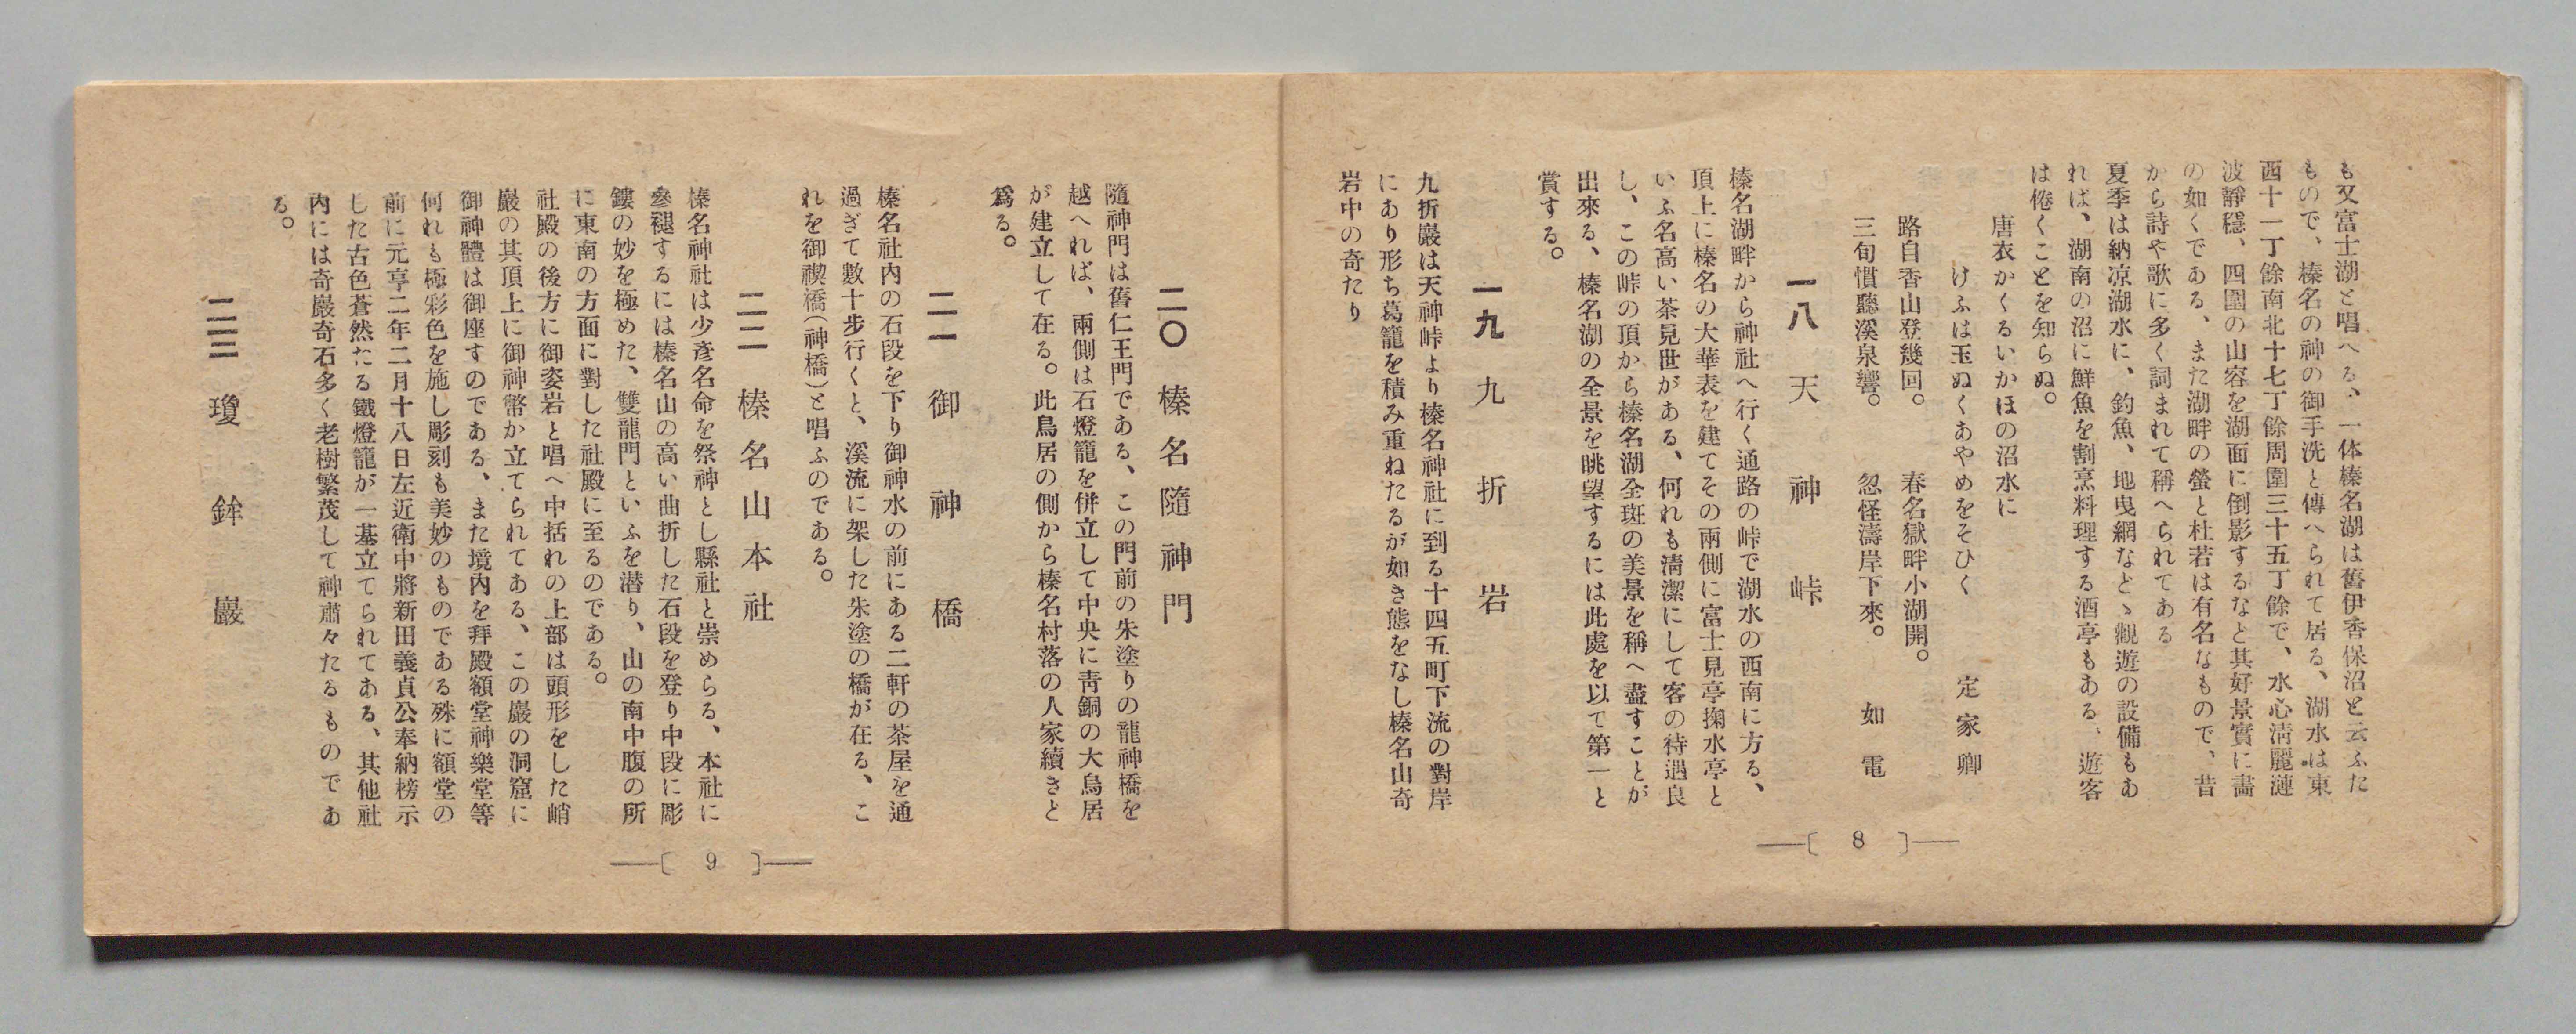 も又富士湖と唱へる、一体榛名湖は舊伊香保沼と云ふた
もので、榛名の神の御手洗と傳へられて居る、湖水は東
西十一丁餘南北十七丁餘周圍三十五丁餘で、水心淸麗漣
波靜穩、四圍の山容を湖面に倒影するなど其好景實に畵
の如くである、また湖畔の螢と杜若は有名なもので、昔
から詩や歌に多く詞まれて稱へられてある
夏季は納凉湖水に、釣魚、地曳網などゝ觀遊の設備もあ
れば、湖南の沼に鮮魚を割烹料理する酒亭もある、遊客
は倦くことを知らぬ。
唐衣かくるいかほの沼水に
けふは玉ぬくあやめをそひく 定家卿
路自香山登幾回。 春名嶽畔小湖開。
三旬慣聽溪泉響。 忽怪濤岸下來。 如電
一八 天神峠
榛名湖畔から神社へ行く通路の峠で湖水の西南に方る、
頂上に榛名の大華表を建てその兩側に富士見亭掬水亭と
いふ名高い茶見世がある、何れも淸潔にして客の待遇良
し、この峠の頂から榛名湖全斑の美景を稱へ盡すことが
出來る、榛名湖の全景を眺望するには此處を以て第一と
賞する。
一九 九折岩
九折巖は天神峠より榛名神社に到る十四五町下流の對岸
にあり形ち葛籠を積み重ねたるが如き態をなし榛名山奇
岩中の奇たり
—〔 8 〕—
二〇 榛名隨神門
隨神門は舊仁王門である、この門前の朱塗りの龍神橋を
越へれば、兩側は石燈籠を併立して中央に靑銅の大鳥居
が建立して在る。此鳥居の側から榛名村落の人家續きと
爲る。
二一 御神橋
榛名社內の石段を下り御神水の前にある二軒の茶屋を通
過ぎて數十步行くと、溪流に架した朱塗の橋が在る、こ
れを御禊橋(神橋)と唱ふのである。
二二 榛名山本社
榛名神社は少彥名命を祭神とし縣社と崇めらる、本社に
參禠するには榛名山の高い曲折した石段を登り中段に彫
鏤の妙を極めた、雙龍門といふを潜り、山の南中腹の所
に東南の方面に對した社殿に至るのである。
社殿の後方に御姿岩と唱へ中括れの上部は頭形をした峭
巖の其頂上に御神幣か立てられてある、この巖の洞窟に
御神體は御座すのである、また境內を拜殿額堂神樂堂等
何れも極彩色を施し彫刻も美妙のものである殊に額堂の
前に元享二年二月十八日左近衛中將新田義貞公奉納榜示
した古色蒼然たる鐵燈籠が一基立てられてある、其他社
內には奇巖奇石多く老樹繁茂して神肅々たるものであ
る。
二三 瓊鉾巖
—〔 9 〕—